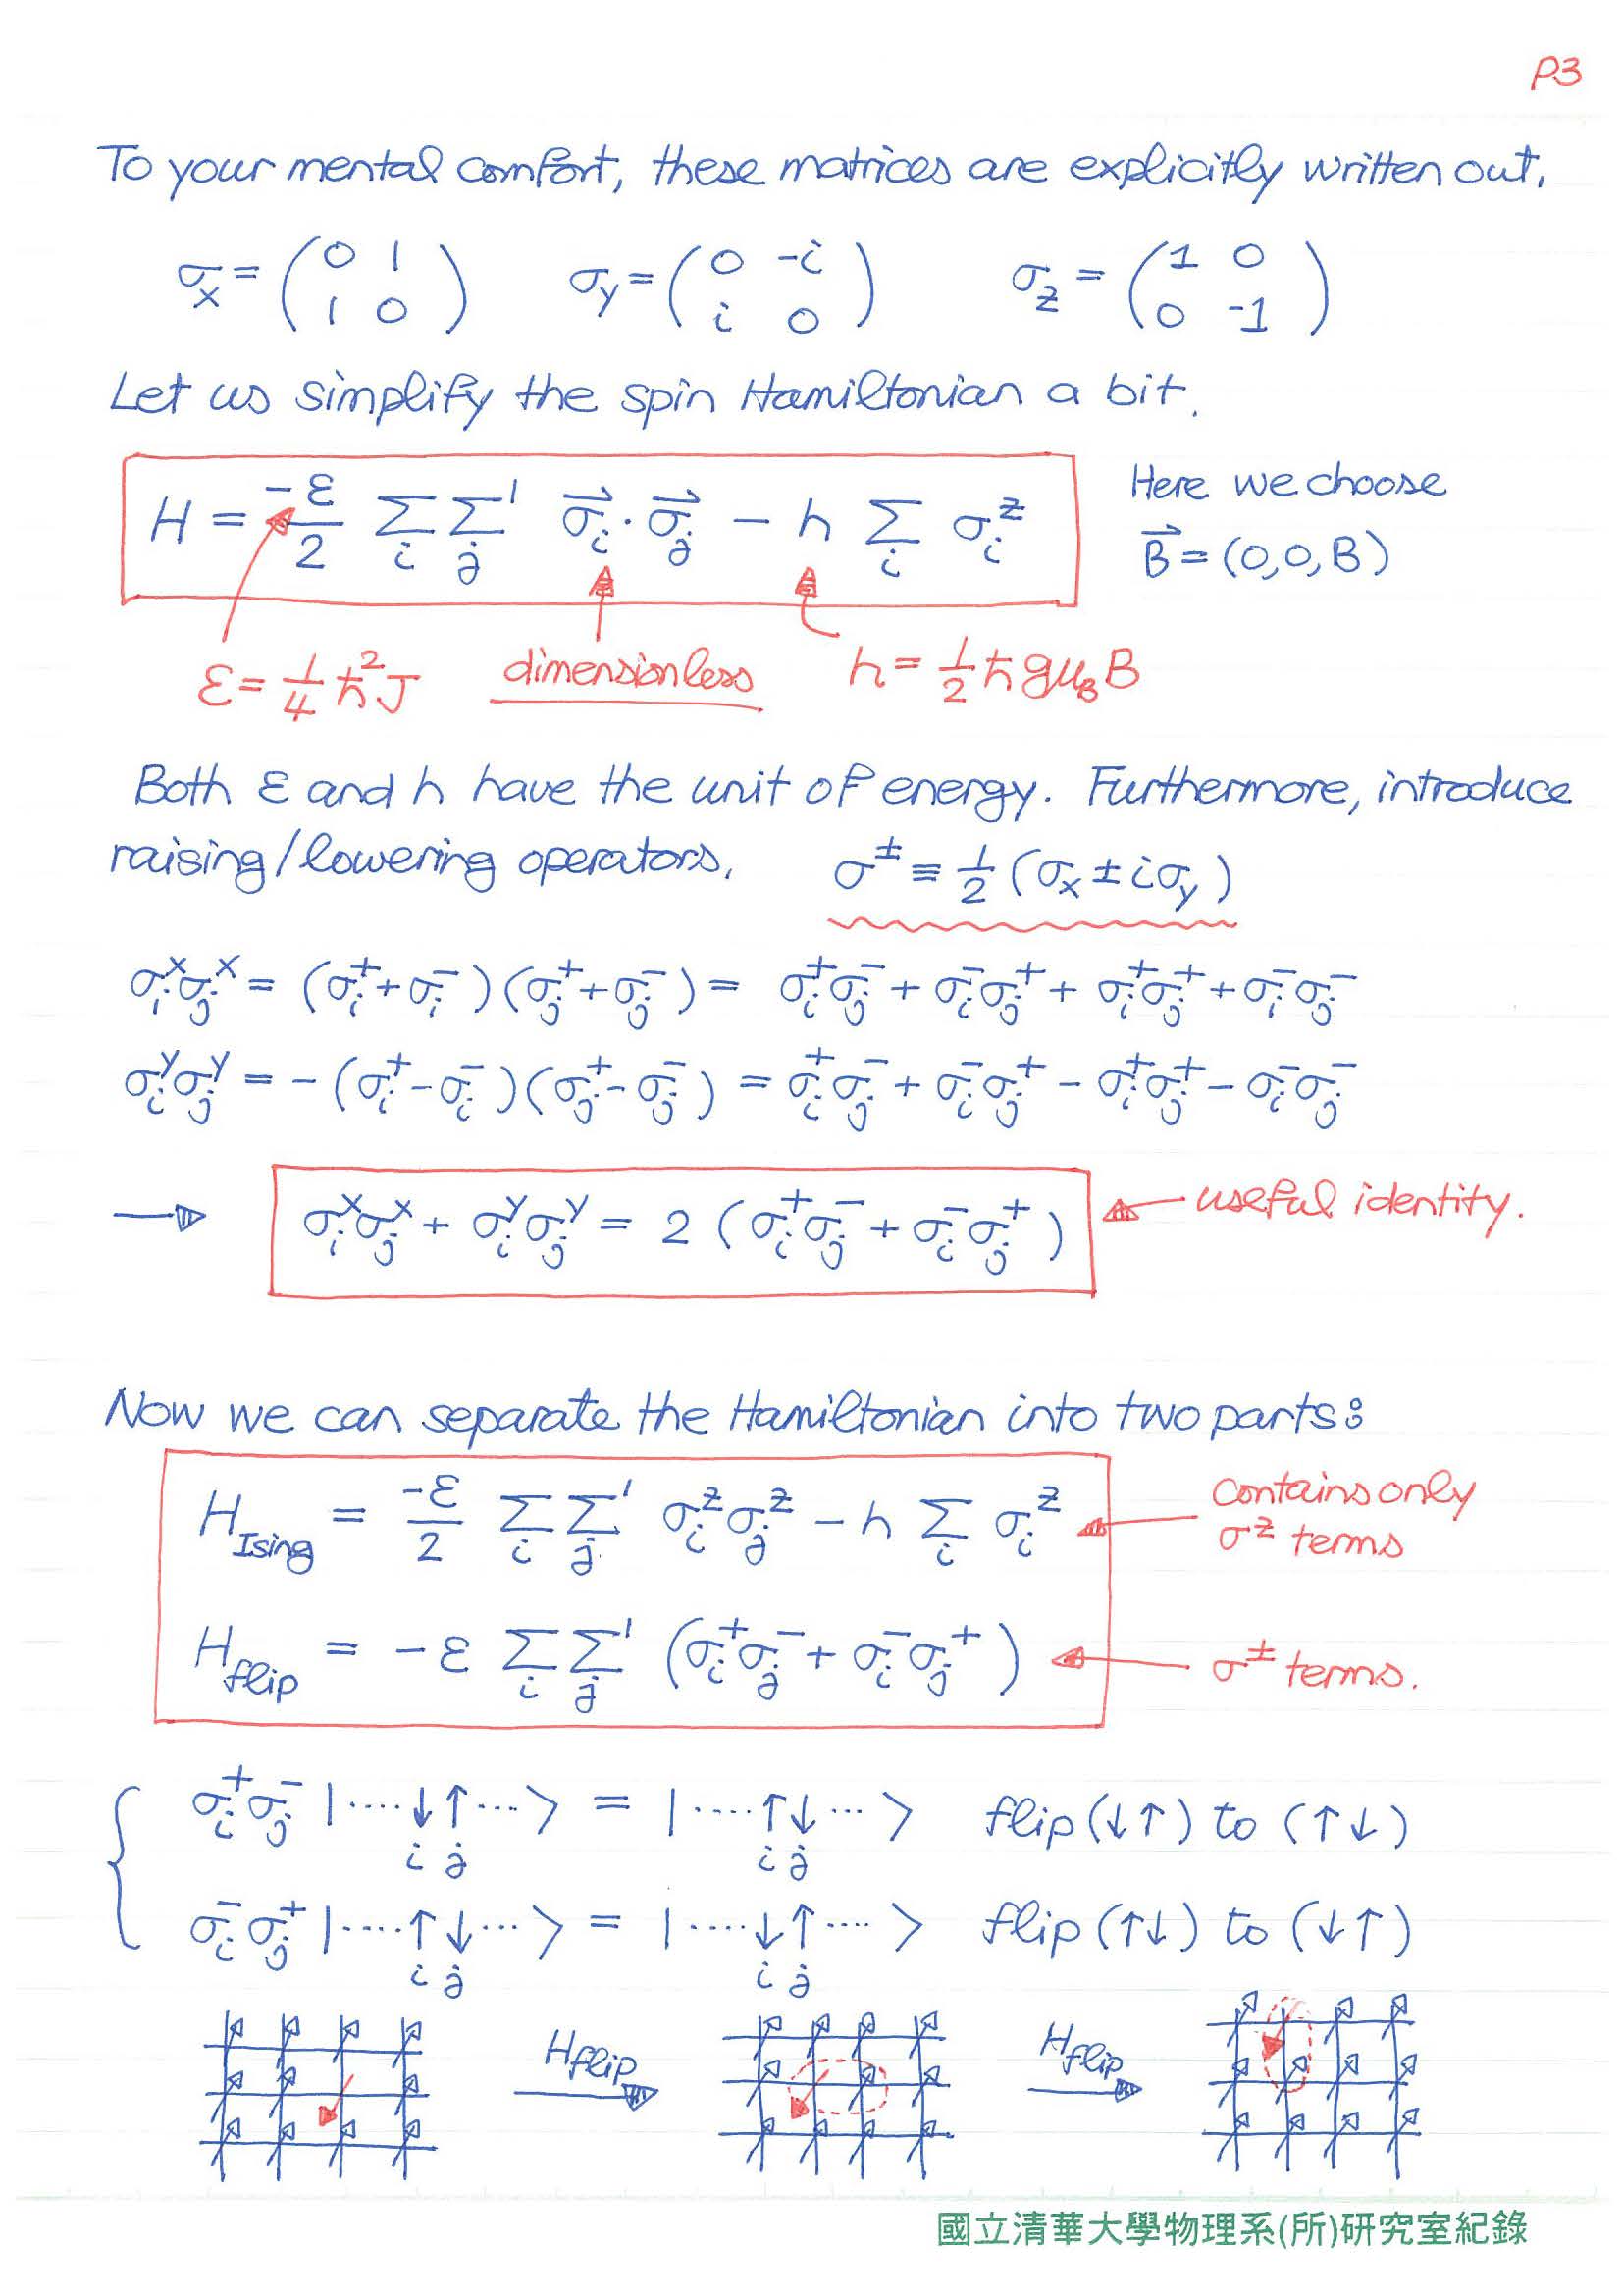 P3
To your mental comfort, these matrices are explicitly written out.
σx = ( 0 1 ; 1 0 )   σy = ( 0 -i ; i 0 )   σz = ( 1 0 ; 0 -1 )
Let us simplify the spin Hamiltonian a bit.
H = -ε/2 Σ_i Σ_j' σ⃗_i · σ⃗_j - h Σ_i σ_i^z   Here we choose
B⃗ = (0,0,B)
ε = 1/4 ħ² J   dimensionless   h = 1/2 ħ g μ_B B
Both ε and h have the unit of energy. Furthermore, introduce
raising/lowering operators.   σ^± ≡ 1/2 (σx ± iσy)
σ_i^x σ_j^x = (σ_i^+ + σ_i^-)(σ_j^+ + σ_j^-) = σ_i^+ σ_j^- + σ_i^- σ_j^+ + σ_i^+ σ_j^+ + σ_i^- σ_j^-
σ_i^y σ_j^y = -(σ_i^+ - σ_i^-)(σ_j^+ - σ_j^-) = σ_i^+ σ_j^- + σ_i^- σ_j^+ - σ_i^+ σ_j^+ - σ_i^- σ_j^-
→ σ_i^x σ_j^x + σ_i^y σ_j^y = 2 (σ_i^+ σ_j^- + σ_i^- σ_j^+) ← useful identity.
Now we can separate the Hamiltonian into two parts:
H_Ising = -ε/2 Σ_i Σ_j' σ_i^z σ_j^z - h Σ_i σ_i^z ← contains only
σ^z terms
H_flip = -ε Σ_i Σ_j' (σ_i^+ σ_j^- + σ_i^- σ_j^+) ← σ^± terms.
σ_i^+ σ_j^- |····↓↑···⟩ = |····↑↓···⟩   flip (↓↑) to (↑↓)
i j   i j
σ_i^- σ_j^+ |····↑↓···⟩ = |····↓↑····⟩   flip (↑↓) to (↓↑)
i j   i j
H_flip   H_flip
國立清華大學物理系(所)研究室紀錄